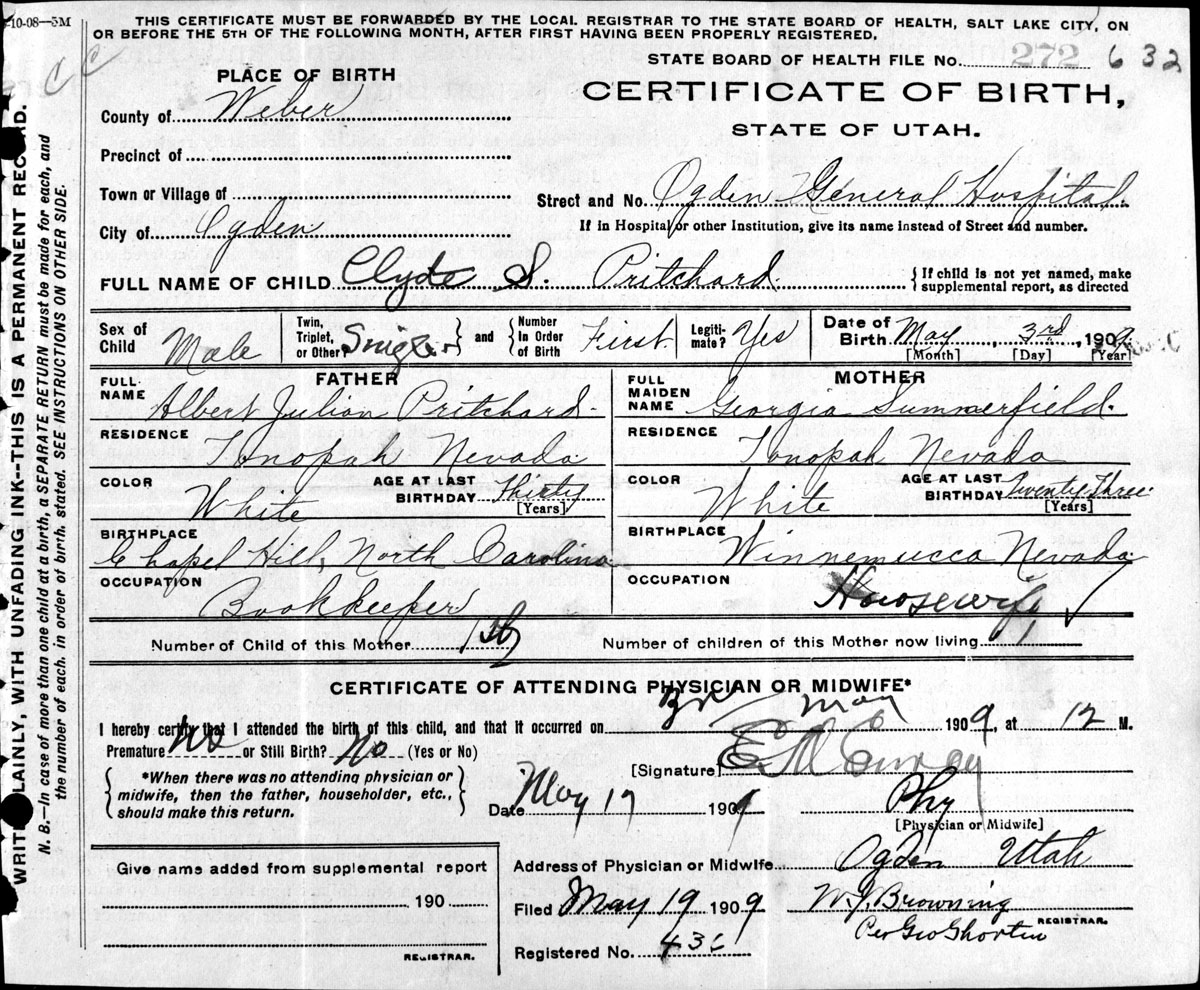 10-08—5M
THIS CERTIFICATE MUST BE FORWARDED BY THE LOCAL REGISTRAR TO THE STATE BOARD OF HEALTH, SALT LAKE CITY, ON
OR BEFORE THE 5TH OF THE FOLLOWING MONTH, AFTER FIRST HAVING BEEN PROPERLY REGISTERED.
STATE BOARD OF HEALTH FILE No. 272 632
PLACE OF BIRTH
CERTIFICATE OF BIRTH,
STATE OF UTAH.
County of Weber
Precinct of
Town or Village of
City of Ogden
Street and No. Ogden General Hospital.
If in Hospital or other Institution, give its name instead of Street and number.
FULL NAME OF CHILD Clyde S. Pritchard. {If child is not yet named, make
supplemental report, as directed
Sex of Child Male
Twin, Triplet, or Other? Single } and { Number In Order of Birth First
Legiti- mate? Yes
Date of Birth May, 3rd, 1909
[Month] [Day] [Year]
FATHER
FULL NAME Albert Julian Pritchard
RESIDENCE Tonopah Nevada
COLOR White AGE AT LAST BIRTHDAY Thirty
[Years]
BIRTHPLACE
Chapel Hill, North Carolina
OCCUPATION Bookkeeper
MOTHER
FULL MAIDEN NAME Georgia Summerfield.
RESIDENCE Tonopah Nevada
COLOR White AGE AT LAST BIRTHDAY Twenty Three
[Years]
BIRTHPLACE Winnemucca Nevada
OCCUPATION Housewife
Number of Child of this Mother 1st
Number of children of this Mother now living 1
CERTIFICATE OF ATTENDING PHYSICIAN OR MIDWIFE*
I hereby certify that I attended the birth of this child, and that it occurred on 3rd May 1909, at 12 M.
Premature No or Still Birth? No (Yes or No)
[Signature]
{ *When there was no attending physician or
midwife, then the father, householder, etc.,
should make this return. }
Date May 17 1909 Phy
[Physician or Midwife]
Address of Physician or Midwife Ogden Utah
Filed May 19 1909 W.J. Browning
REGISTRAR.
Registered No.
Give name added from supplemental report
190
REGISTRAR.
WRITE PLAINLY, WITH UNFADING INK--THIS IS A PERMANENT RECORD.
N. B.—In case of more than one child at a birth, a SEPARATE RETURN must be made for each, and
the number of each, in order of birth, stated. SEE INSTRUCTIONS ON OTHER SIDE.